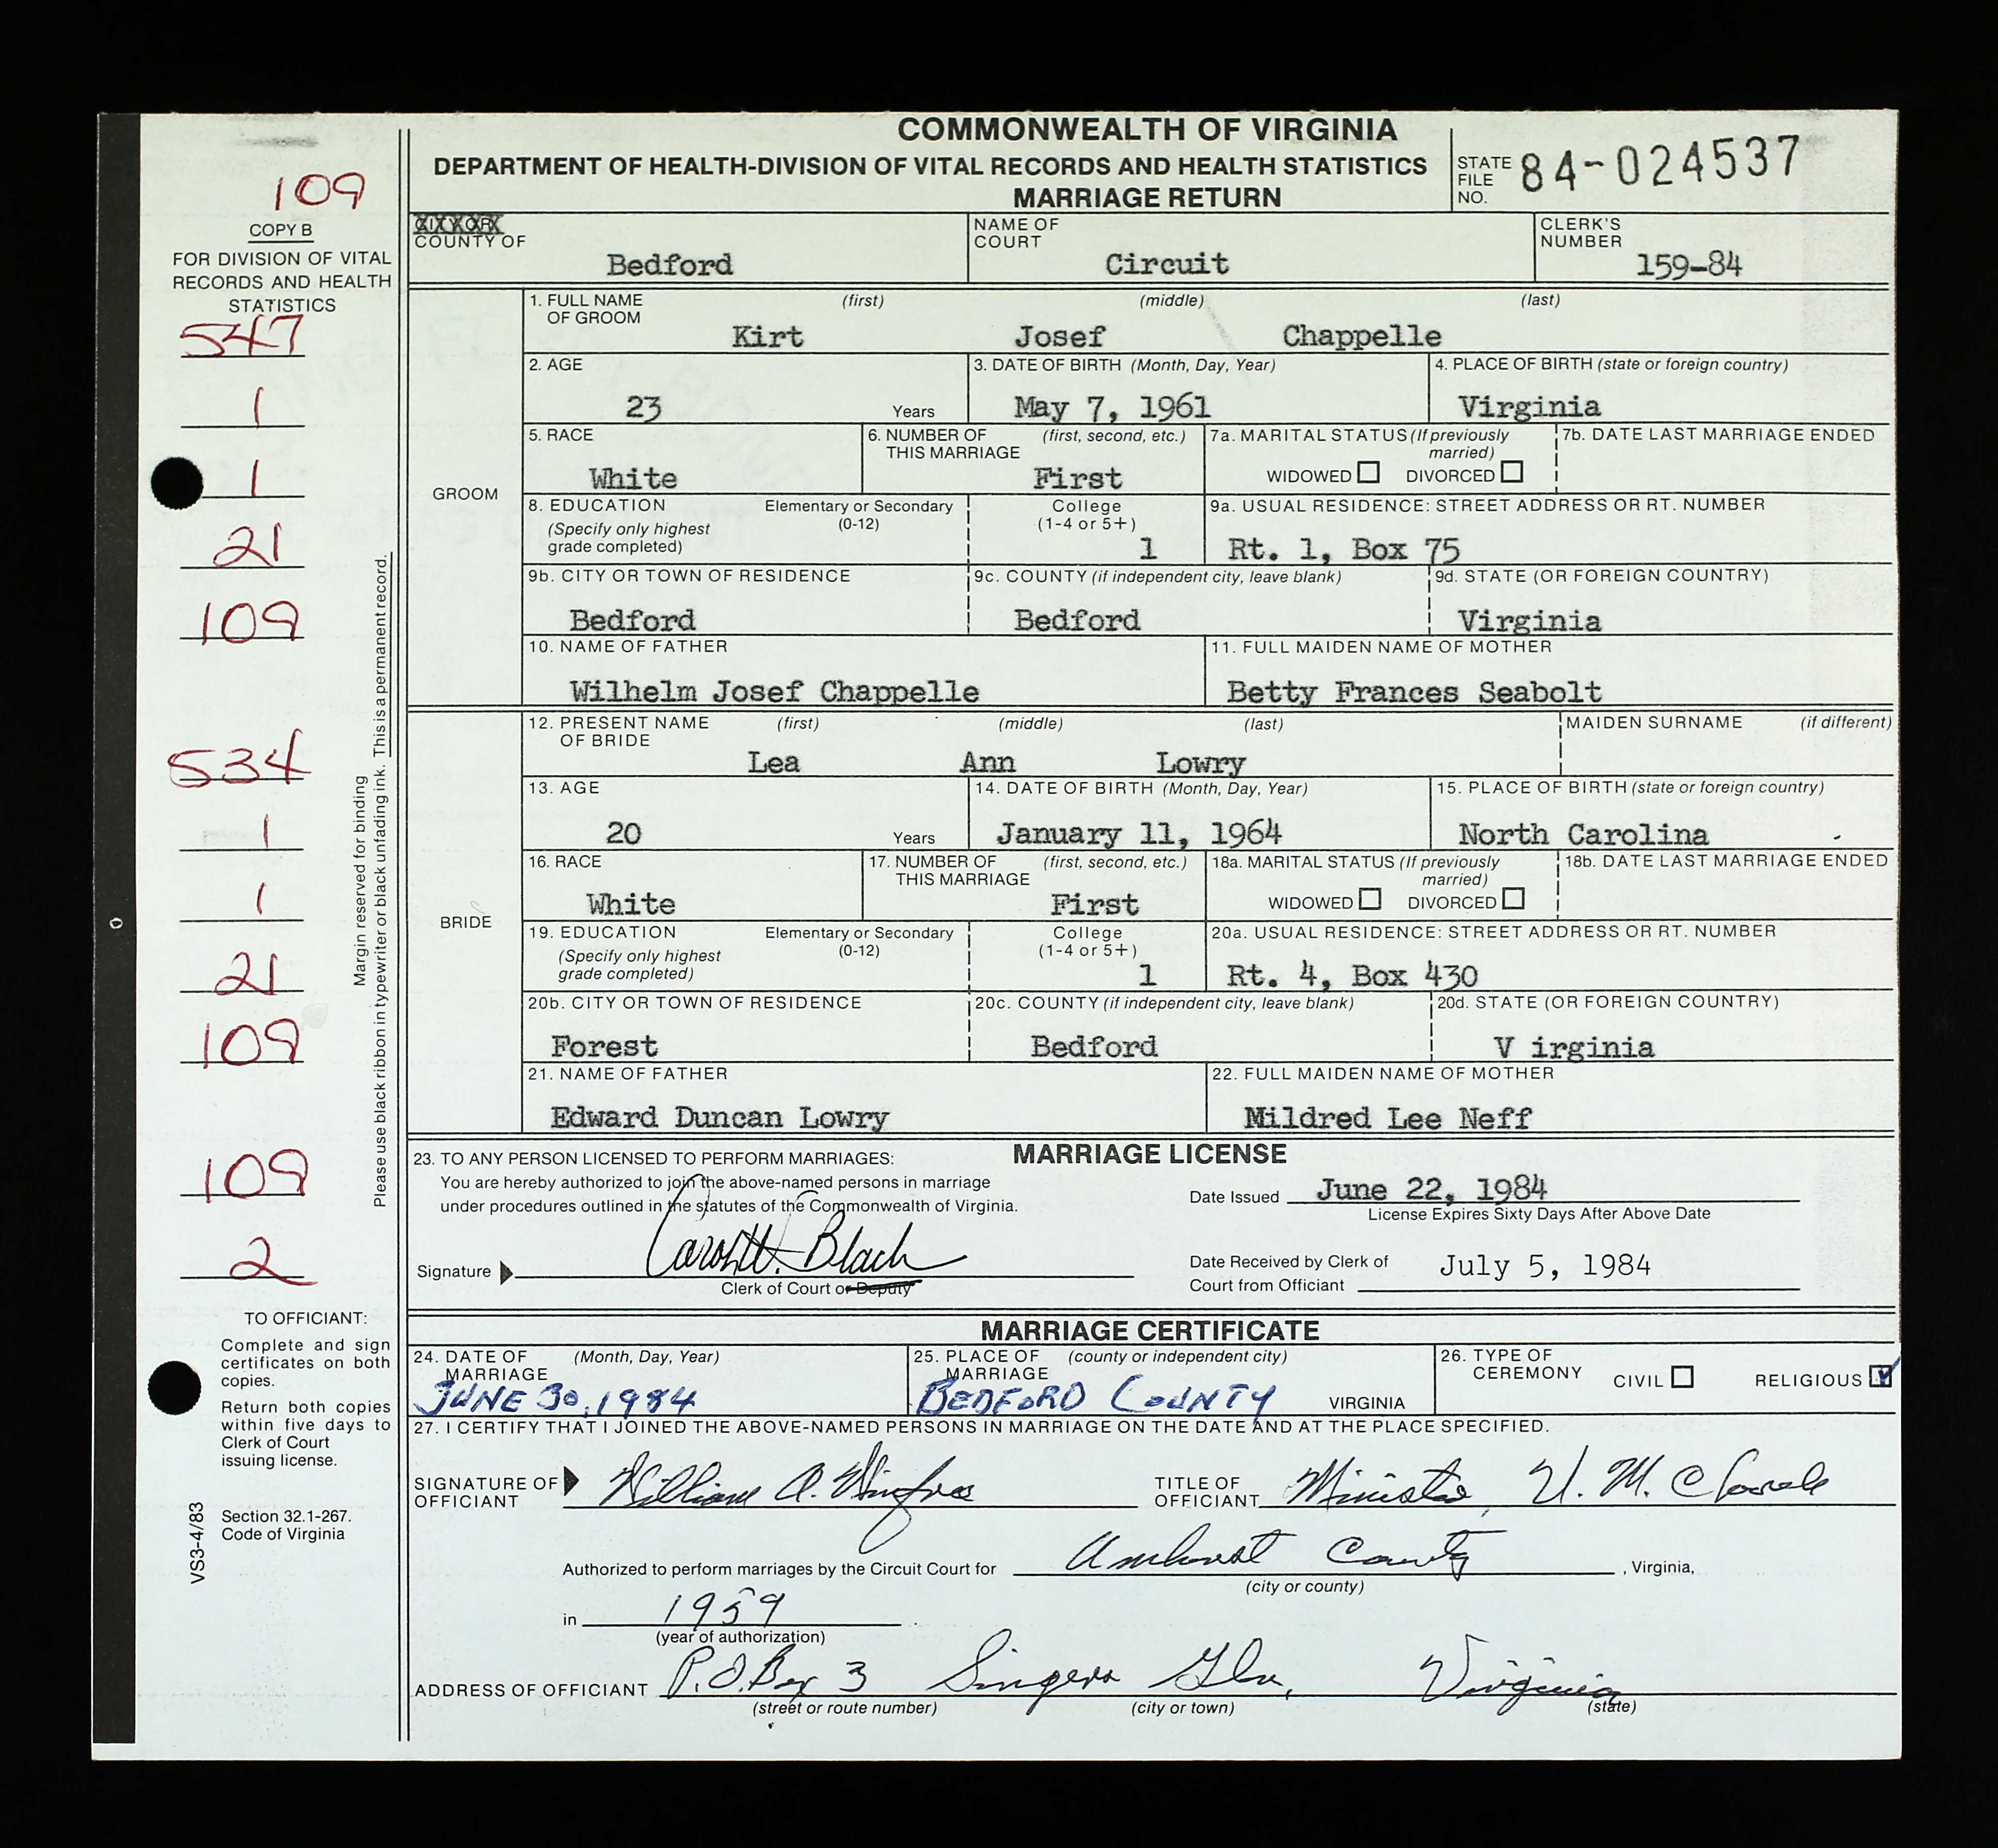 COMMONWEALTH OF VIRGINIA
DEPARTMENT OF HEALTH-DIVISION OF VITAL RECORDS AND HEALTH STATISTICS
MARRIAGE RETURN
STATE FILE NO. 84-024537
109
COPY B
FOR DIVISION OF VITAL
RECORDS AND HEALTH
STATISTICS
547
1
1
21
109
534
1
1
21
109
109
2
Margin reserved for binding
Please use black ribbon in typewriter or black unfading ink. This is a permanent record.
TO OFFICIANT:
Complete and sign
certificates on both
copies.
Return both copies
within five days to
Clerk of Court
issuing license.
Section 32.1-267.
Code of Virginia
VS3-4/83
CITY OR
COUNTY OF Bedford
NAME OF COURT Circuit
CLERK'S NUMBER 159-84
GROOM
1. FULL NAME OF GROOM (first) (middle) (last)
Kirt Josef Chappelle
2. AGE 23 Years
3. DATE OF BIRTH (Month, Day, Year) May 7, 1961
4. PLACE OF BIRTH (state or foreign country) Virginia
5. RACE White
6. NUMBER OF THIS MARRIAGE (first, second, etc.) First
7a. MARITAL STATUS (If previously married) WIDOWED DIVORCED
7b. DATE LAST MARRIAGE ENDED
8. EDUCATION (Specify only highest grade completed) Elementary or Secondary (0-12) College (1-4 or 5+) 1
9a. USUAL RESIDENCE: STREET ADDRESS OR RT. NUMBER Rt. 1, Box 75
9b. CITY OR TOWN OF RESIDENCE Bedford
9c. COUNTY (if independent city, leave blank) Bedford
9d. STATE (OR FOREIGN COUNTRY) Virginia
10. NAME OF FATHER Wilhelm Josef Chappelle
11. FULL MAIDEN NAME OF MOTHER Betty Frances Seabolt
BRIDE
12. PRESENT NAME OF BRIDE (first) (middle) (last) MAIDEN SURNAME (if different)
Lea Ann Lowry
13. AGE 20 Years
14. DATE OF BIRTH (Month, Day, Year) January 11, 1964
15. PLACE OF BIRTH (state or foreign country) North Carolina
16. RACE White
17. NUMBER OF THIS MARRIAGE (first, second, etc.) First
18a. MARITAL STATUS (If previously married) WIDOWED DIVORCED
18b. DATE LAST MARRIAGE ENDED
19. EDUCATION (Specify only highest grade completed) Elementary or Secondary (0-12) College (1-4 or 5+) 1
20a. USUAL RESIDENCE: STREET ADDRESS OR RT. NUMBER Rt. 4, Box 430
20b. CITY OR TOWN OF RESIDENCE Forest
20c. COUNTY (if independent city, leave blank) Bedford
20d. STATE (OR FOREIGN COUNTRY) V irginia
21. NAME OF FATHER Edward Duncan Lowry
22. FULL MAIDEN NAME OF MOTHER Mildred Lee Neff
MARRIAGE LICENSE
23. TO ANY PERSON LICENSED TO PERFORM MARRIAGES:
You are hereby authorized to join the above-named persons in marriage
under procedures outlined in the statutes of the Commonwealth of Virginia.
Date Issued June 22, 1984
License Expires Sixty Days After Above Date
Signature Carol W. Black
Clerk of Court or Deputy
Date Received by Clerk of
Court from Officiant July 5, 1984
MARRIAGE CERTIFICATE
24. DATE OF MARRIAGE (Month, Day, Year) JUNE 30, 1984
25. PLACE OF MARRIAGE (county or independent city) BEDFORD COUNTY VIRGINIA
26. TYPE OF CEREMONY CIVIL RELIGIOUS
27. I CERTIFY THAT I JOINED THE ABOVE-NAMED PERSONS IN MARRIAGE ON THE DATE AND AT THE PLACE SPECIFIED.
SIGNATURE OF OFFICIANT William A.
TITLE OF OFFICIANT Minister, U. M. Church
Authorized to perform marriages by the Circuit Court for Amherst County, Virginia,
(city or county)
in 1959
(year of authorization)
ADDRESS OF OFFICIANT P.O. Box 3 Singers Glen, Virginia
(street or route number) (city or town) (state)